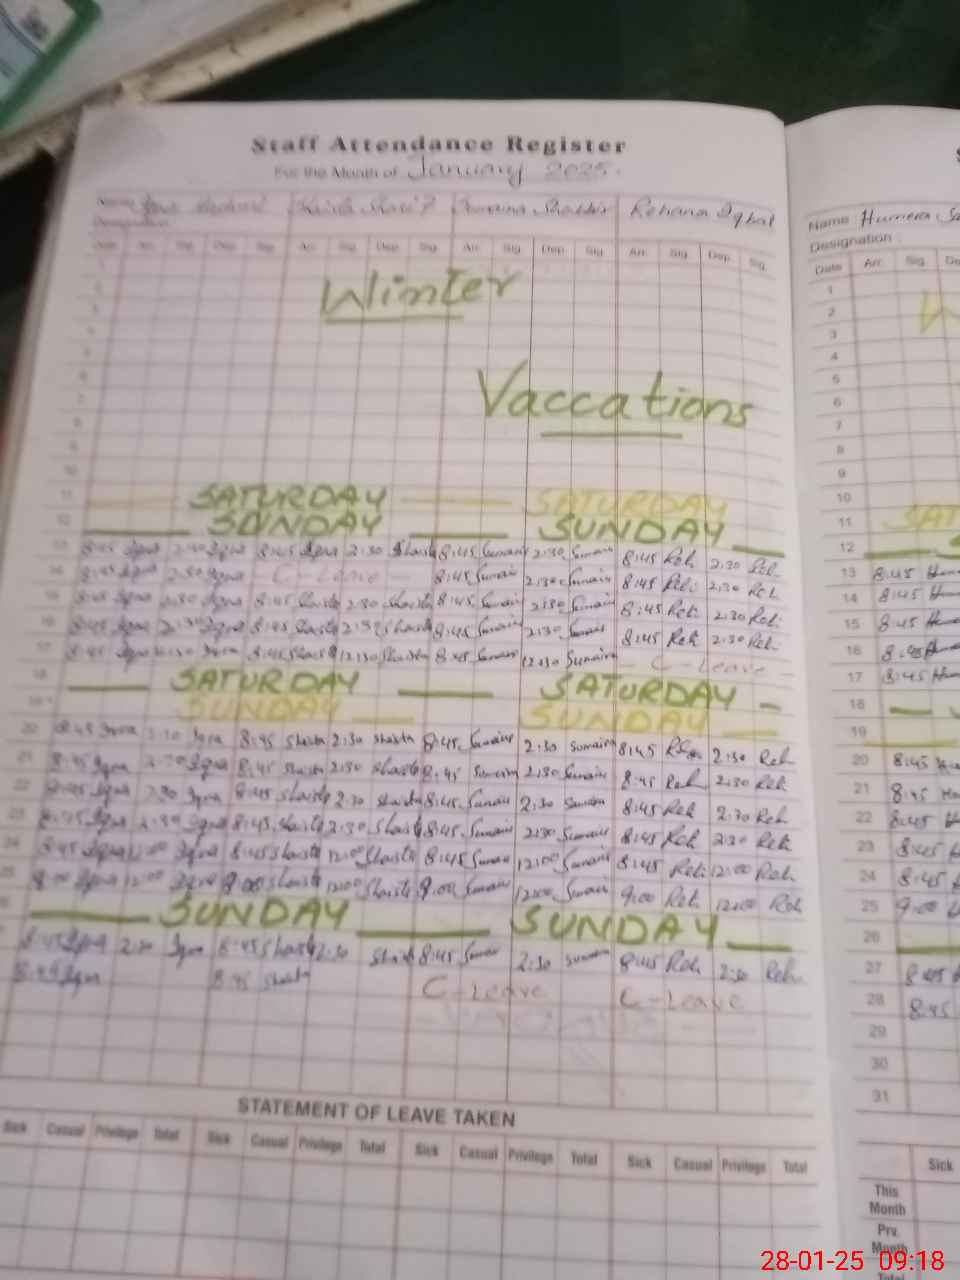 Staff Attendance Register
For the Month of January 2025.
Name Shakhir Rehana Iqbal Name Humera
Designation Designation :
Arr. Sig. Dep. Sig. Arr. Sig. Dep. Sig. Arr. Sig. Dep. Sig. Arr. Sig. Dep. Sig. Date Arr. Sig.
1
Winter 2
3
4
5
Vaccations 6
7
8
9
10
11 SATURDAY SATURDAY 11
12 SUNDAY SUNDAY 12
13 8:45 Iqra 2:30 Iqra 8:45 2:30 Shaista 8:45 Sumaira 2:30 Sumaira 8:45 Reh. 2:30 Reh. 13 8:45
14 8:45 Iqra 2:30 Iqra C-Leave 8:45 Sumaira 2:30 Sumaira 8:45 Reh. 2:30 Reh. 14 8:45
15 8:45 Iqra 2:30 Iqra 8:45 Shaista 2:30 Shaista 8:45 Sumaira 2:30 Sumaira 8:45 Reh. 2:30 Reh. 15 8:45
16 8:45 Iqra 2:30 Iqra 8:45 Shaista 2:30 Shaista 8:45 Sumaira 2:30 Sumaira 8:45 Reh 2:30 Reh. 16 8:45
17 8:45 Iqra 12:30 Iqra 8:45 Shaista 12:30 Shaista 8:45 Sumaira 12:30 Sumaira C-Leave 17 8:45
18 SATURDAY SATURDAY 18
19 SUNDAY SUNDAY 19
20 8:45 Iqra 2:30 Iqra 8:45 Shaista 2:30 Shaista 8:45 Sumaira 2:30 Sumaira 8:45 2:30 Reh 20 8:45
21 8:45 Iqra 2:30 Iqra 8:45 Shaista 2:30 Shaista 8:45 Sumaira 2:30 Sumaira 8:45 Reh 2:30 Reh 21 8:45
22 8:45 Iqra 2:30 Iqra 8:45 Shaista 2:30 Shaista 8:45 Sumaira 2:30 Sumaira 8:45 Reh 2:30 Reh 22 8:45
23 8:45 Iqra 2:30 Iqra 8:45 Shaista 2:30 Shaista 8:45 Sumaira 2:30 Sumaira 8:45 Reh 2:30 Reh. 23 8:45
24 8:45 Iqra 12:00 Iqra 8:45 Shaista 12:00 Shaista 8:45 Sumaira 12:00 Sumaira 8:45 Reh. 12:00 Reh. 24 8:45
25 9:00 Iqra 12:00 Iqra 9:00 Shaista 12:00 Shaista 9:00 Sumaira 12:00 Sumaira 9:00 Reh. 12:00 Reh 25 9:00
SUNDAY SUNDAY 26
8:45 Iqra 2:30 Iqra 8:45 Shaista 2:30 8:45 2:30 8:45 Reh. 2:30 Reh. 27 8:45
8:45 Iqra 8:45 Shaista C-Leave C-Leave 28 8:45
29
30
31
STATEMENT OF LEAVE TAKEN
Sick Casual Privilege Total Sick Casual Privilege Total Sick Casual Privilege Total Sick Casual Privilege Total Sick
This Month
Prv. Month
Total
28-01-25 09:18